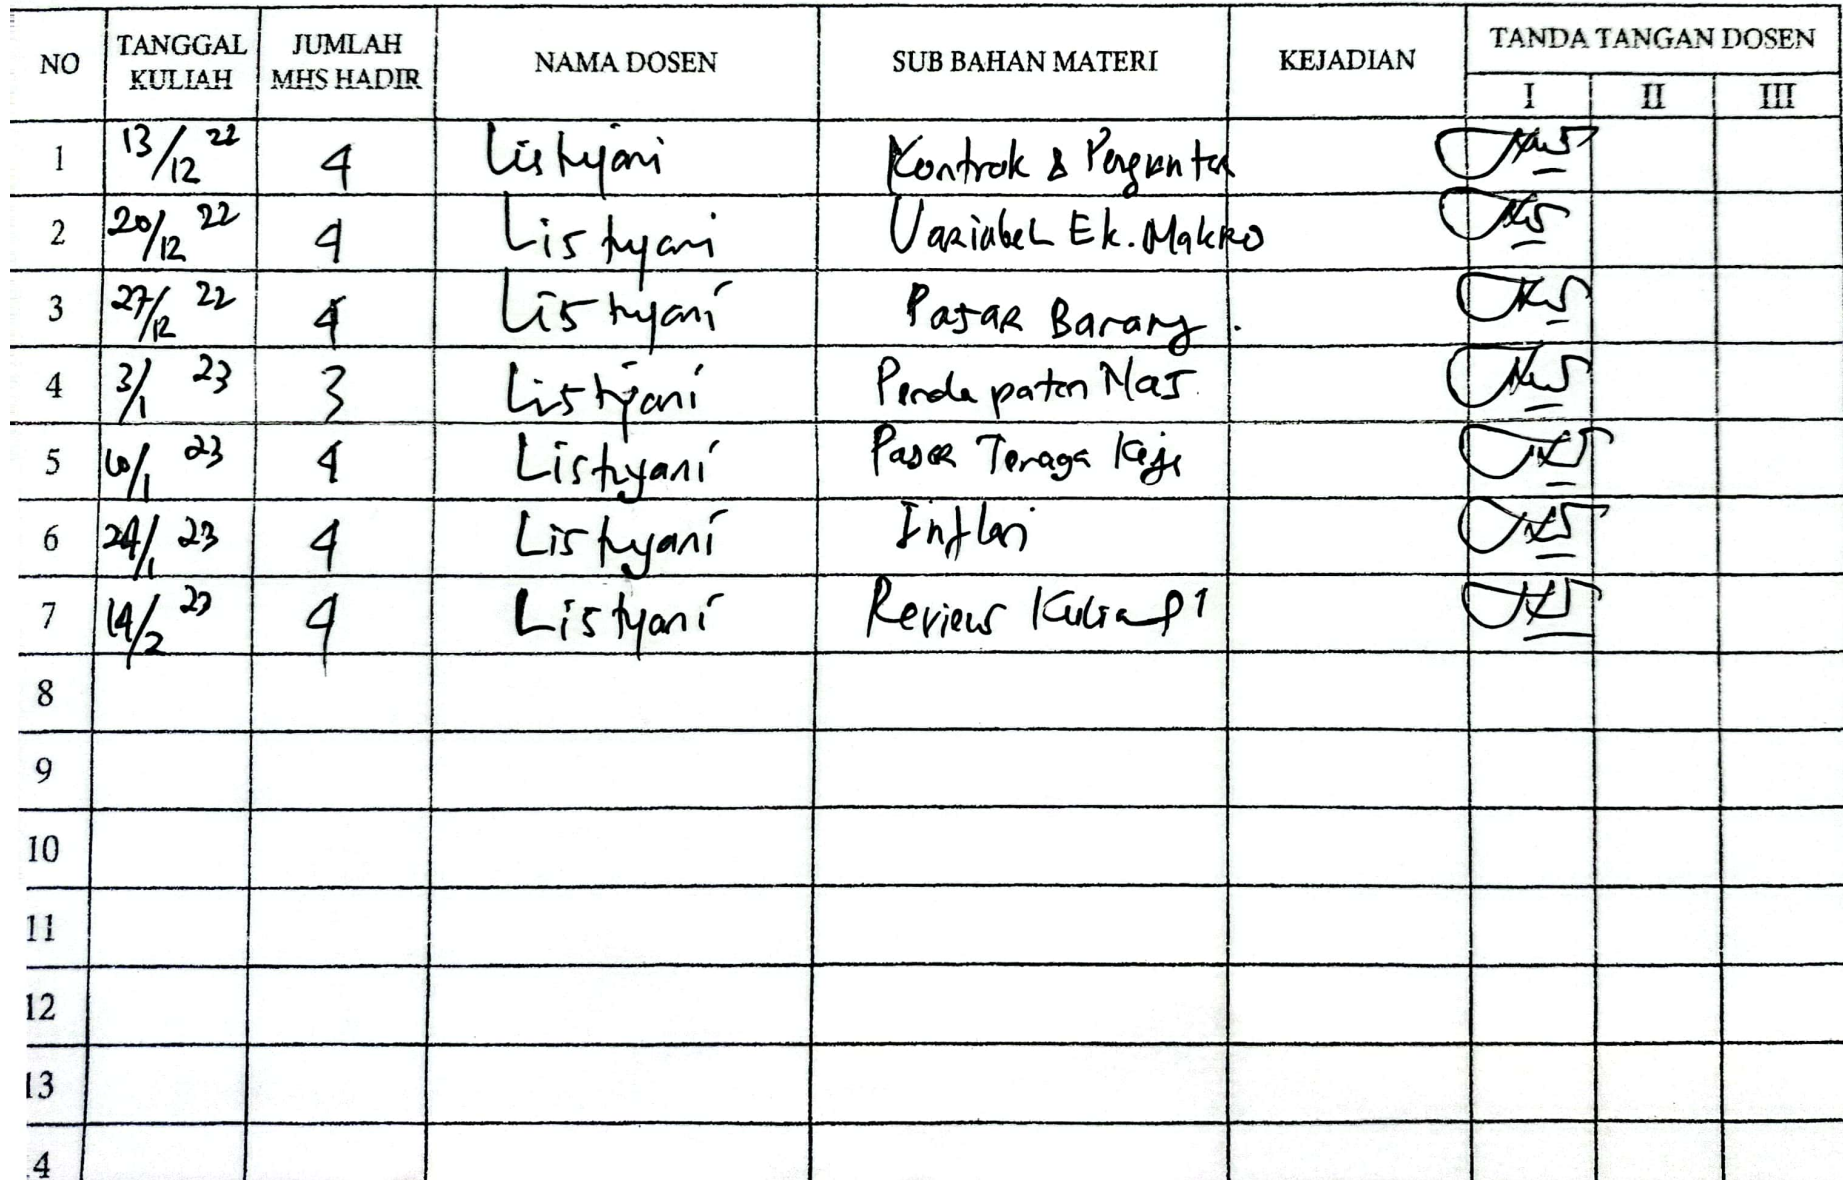 NO TANGGAL KULIAH JUMLAH MHS HADIR NAMA DOSEN SUB BAHAN MATERI KEJADIAN TANDA TANGAN DOSEN
I II III
1 13/12 22 4 Listyani Kontrak & Pengantar
2 20/12 22 4 Listyani Variabel Ek. Makro
3 27/12 22 4 Listyani Pasar Barang.
4 3/1 23 3 Listyani Pendapatan Nas.
5 10/1 23 4 Listyani Pasar Tenaga Kerja
6 24/1 23 4 Listyani Inflasi
7 14/2 23 4 Listyani Review Kuliah
8
9
10
11
12
13
4